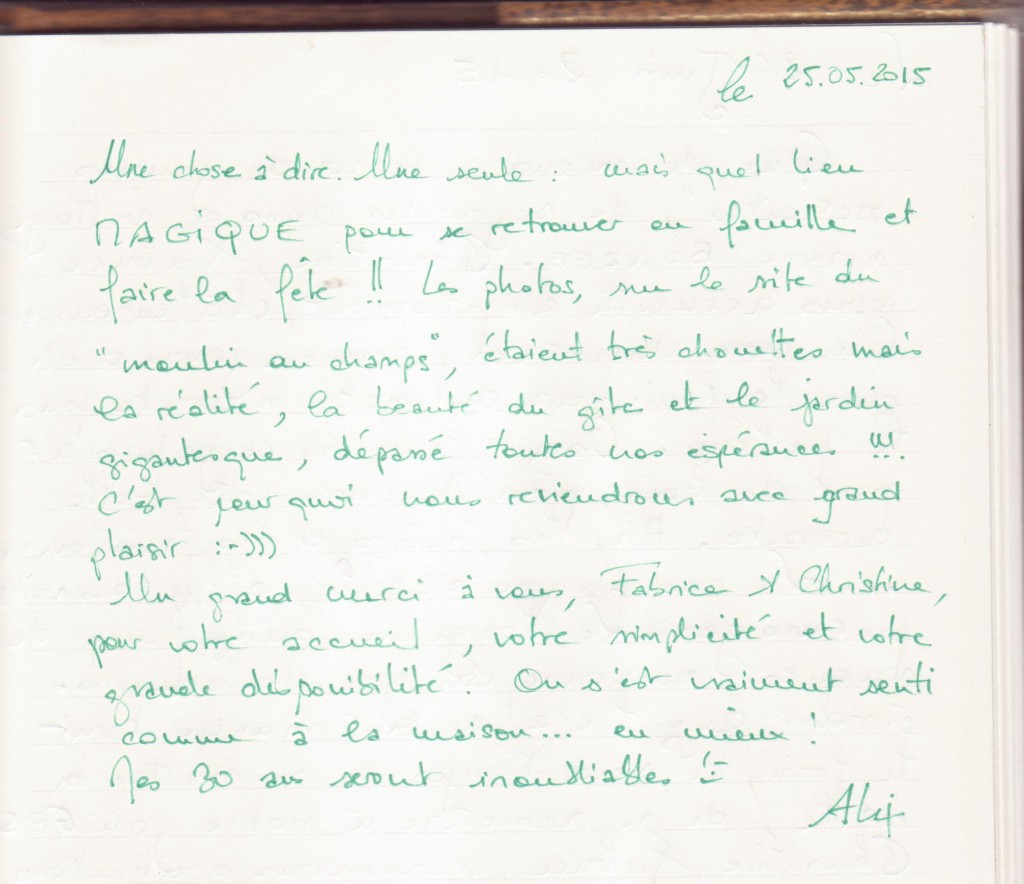 le 25.05.2015
Une chose à dire. Une seule : mais quel lieu
MAGiQUE pour se retrouver en famille et
faire la fête !! Les photos, sur le site du
"moulin au champs", étaient très chouettes mais
la réalité, la beauté du gîte et le jardin
gigantesque, dépassé toutes nos espérances !!!
C'est pourquoi nous reviendrons avec grand
plaisir :-)))
Un grand merci à vous, Fabrice & Christine,
pour votre accueil, votre simplicité et votre
grande disponibilité. On s'est vraiment senti
comme à la maison... en mieux !
Mes 30 ans seront inoubliables !